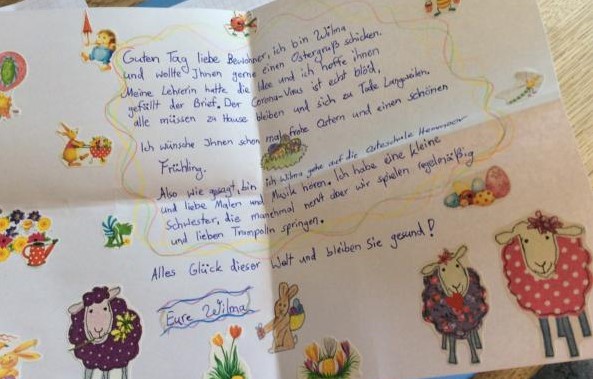 Guten Tag liebe Bewohner, ich bin Wilma
und wollte Ihnen gerne einen Ostergruß schicken.
Meine Lehrerin hatte die Idee und ich hoffe ihnen
gefällt der Brief. Der Corona-Virus ist echt blöd,
alle müssen zu Hause bleiben und sich zu Tode Langweilen.
Ich wünsche Ihnen schon mal frohe Ostern und einen schönen
Frühling.
Also wie gesagt, bin ich Wilma gehe auf die Osteschule Hemmoor
und liebe Malen und Musik hören. Ich habe eine kleine
Schwester, die manchmal nervt aber wir spielen regelmäßig
und lieben Trampolin springen.
Alles Glück dieser Welt und bleiben Sie gesund!
Eure Wilma